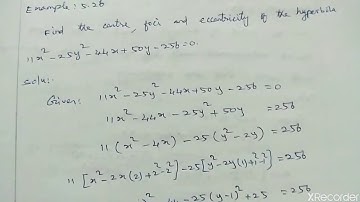 Example: 5.26
Find the centre, foci and eccentricity of the hyperbola
11x² - 25y² - 44x + 50y - 256 = 0.
Solu:
Given: 11x² - 25y² - 44x + 50y - 256 = 0
11x² - 44x - 25y² + 50y = 256
11(x² - 4x) - 25(y² - 2y) = 256
11[x² - 2x(2) + 2² - 2²] - 25[y² - 2y(1) + 1² - 1²] = 256
- 25(y-1)² + 25 = 256
XRecorder